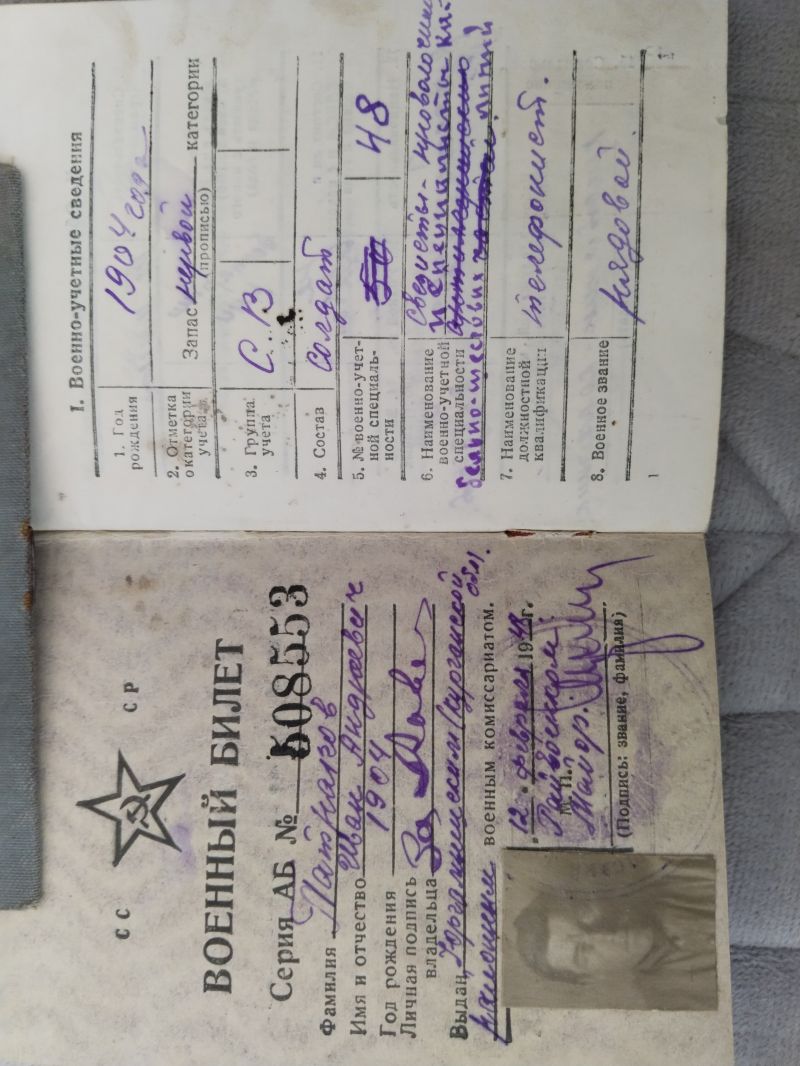 СС СР
ВОЕННЫЙ БИЛЕТ
Серия АБ № 508553
Фамилия Патраков
Имя и отчество Иван Андреевич
Год рождения 1904
Личная подпись
владельца За
Выдан Юргамышским Курганской обл.
районным военным комиссариатом.
"12" февраля 1948 г.
Райвоенком
М. П. Майор
(Подпись: звание, фамилия)
I. Военно-учетные сведения
1. Год рождения 1904 года
2. Отметка о категории учета Запас первой категории
(прописью)
3. Группа учета С. В
4. Состав Солдат
5. № военно-учетной специальности 50 48
6. Наименование военно-учетной специальности Связисты-проволочники и специалисты кабельно-шестовых линий
7. Наименование должностной квалификации телефонист.
8. Военное звание рядовой
1